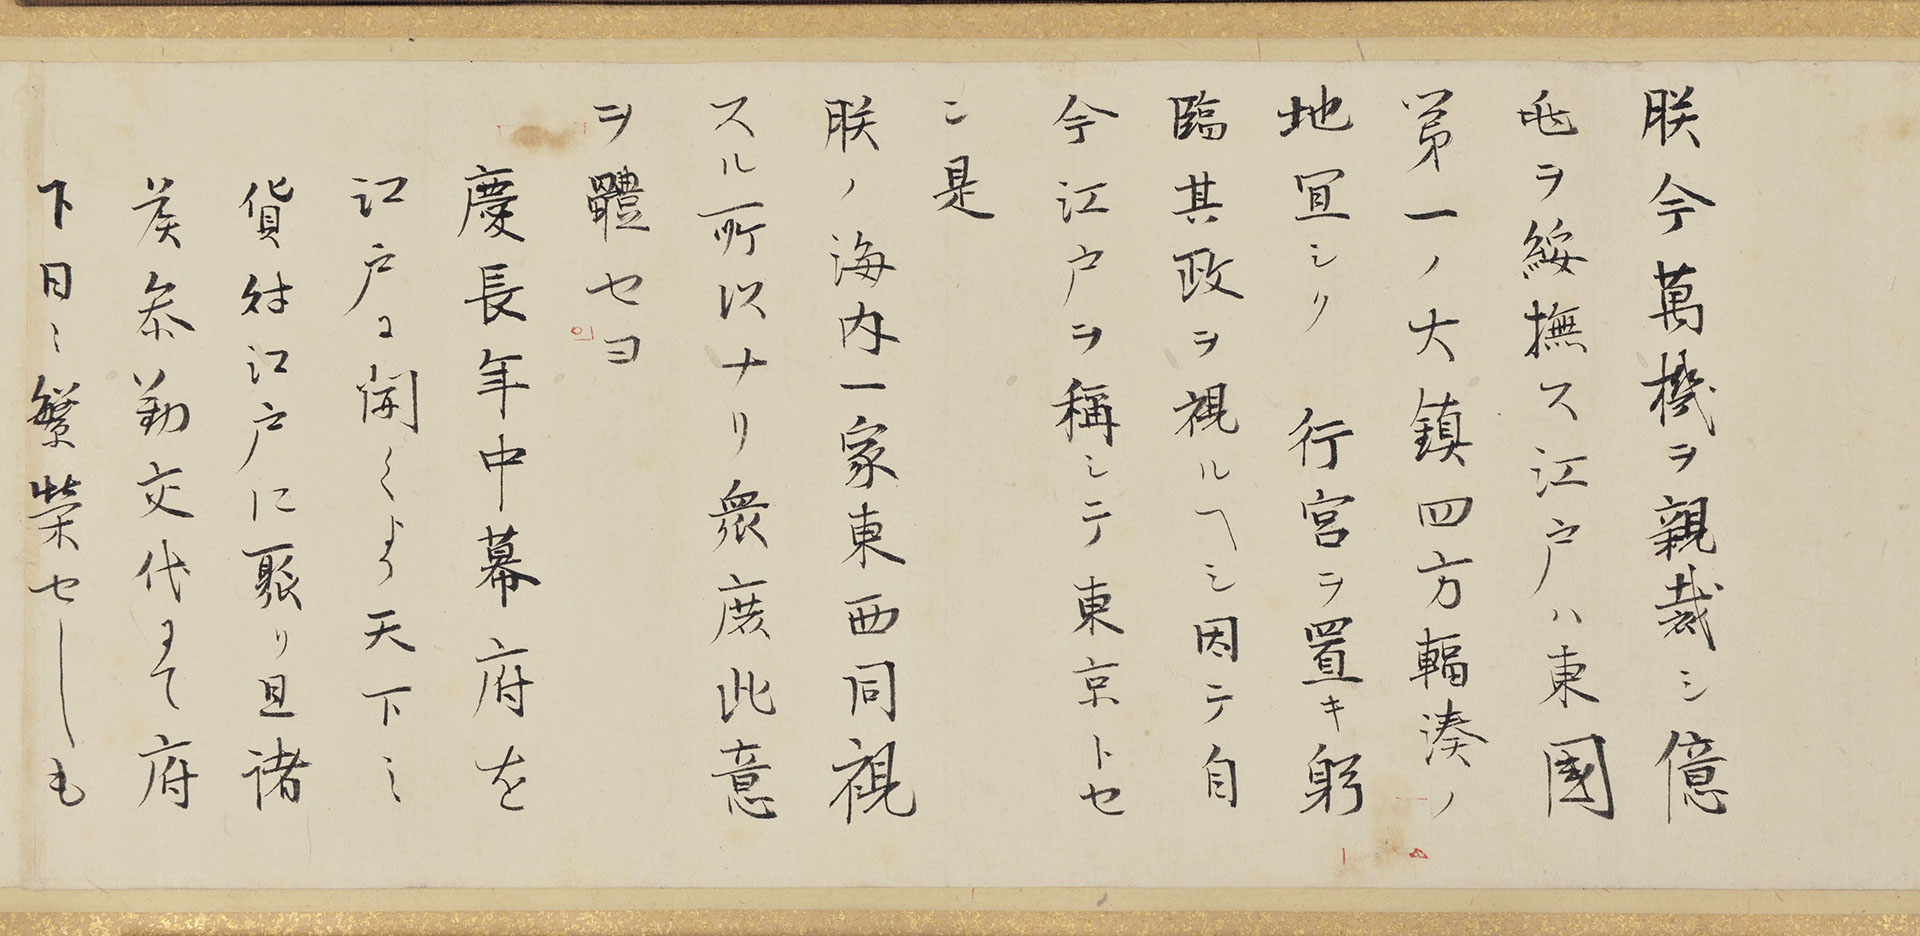 朕今萬機ヲ親裁シ億
兆ヲ綏撫ス江戸ハ東國
第一ノ大鎮四方輻湊ノ
地宜シク行宮ヲ置キ躬
臨其政ヲ視ルヘシ因テ自
今江戸ヲ稱シテ東京トセ
ン是
朕ノ海内一家東西同視
スル所以ナリ衆庶此意
ヲ體セヨ
慶長年中幕府を
江戸に開くより天下之
貨財江戸に聚り且諸
侯参勤交代して府
下日ニ繁榮せしも